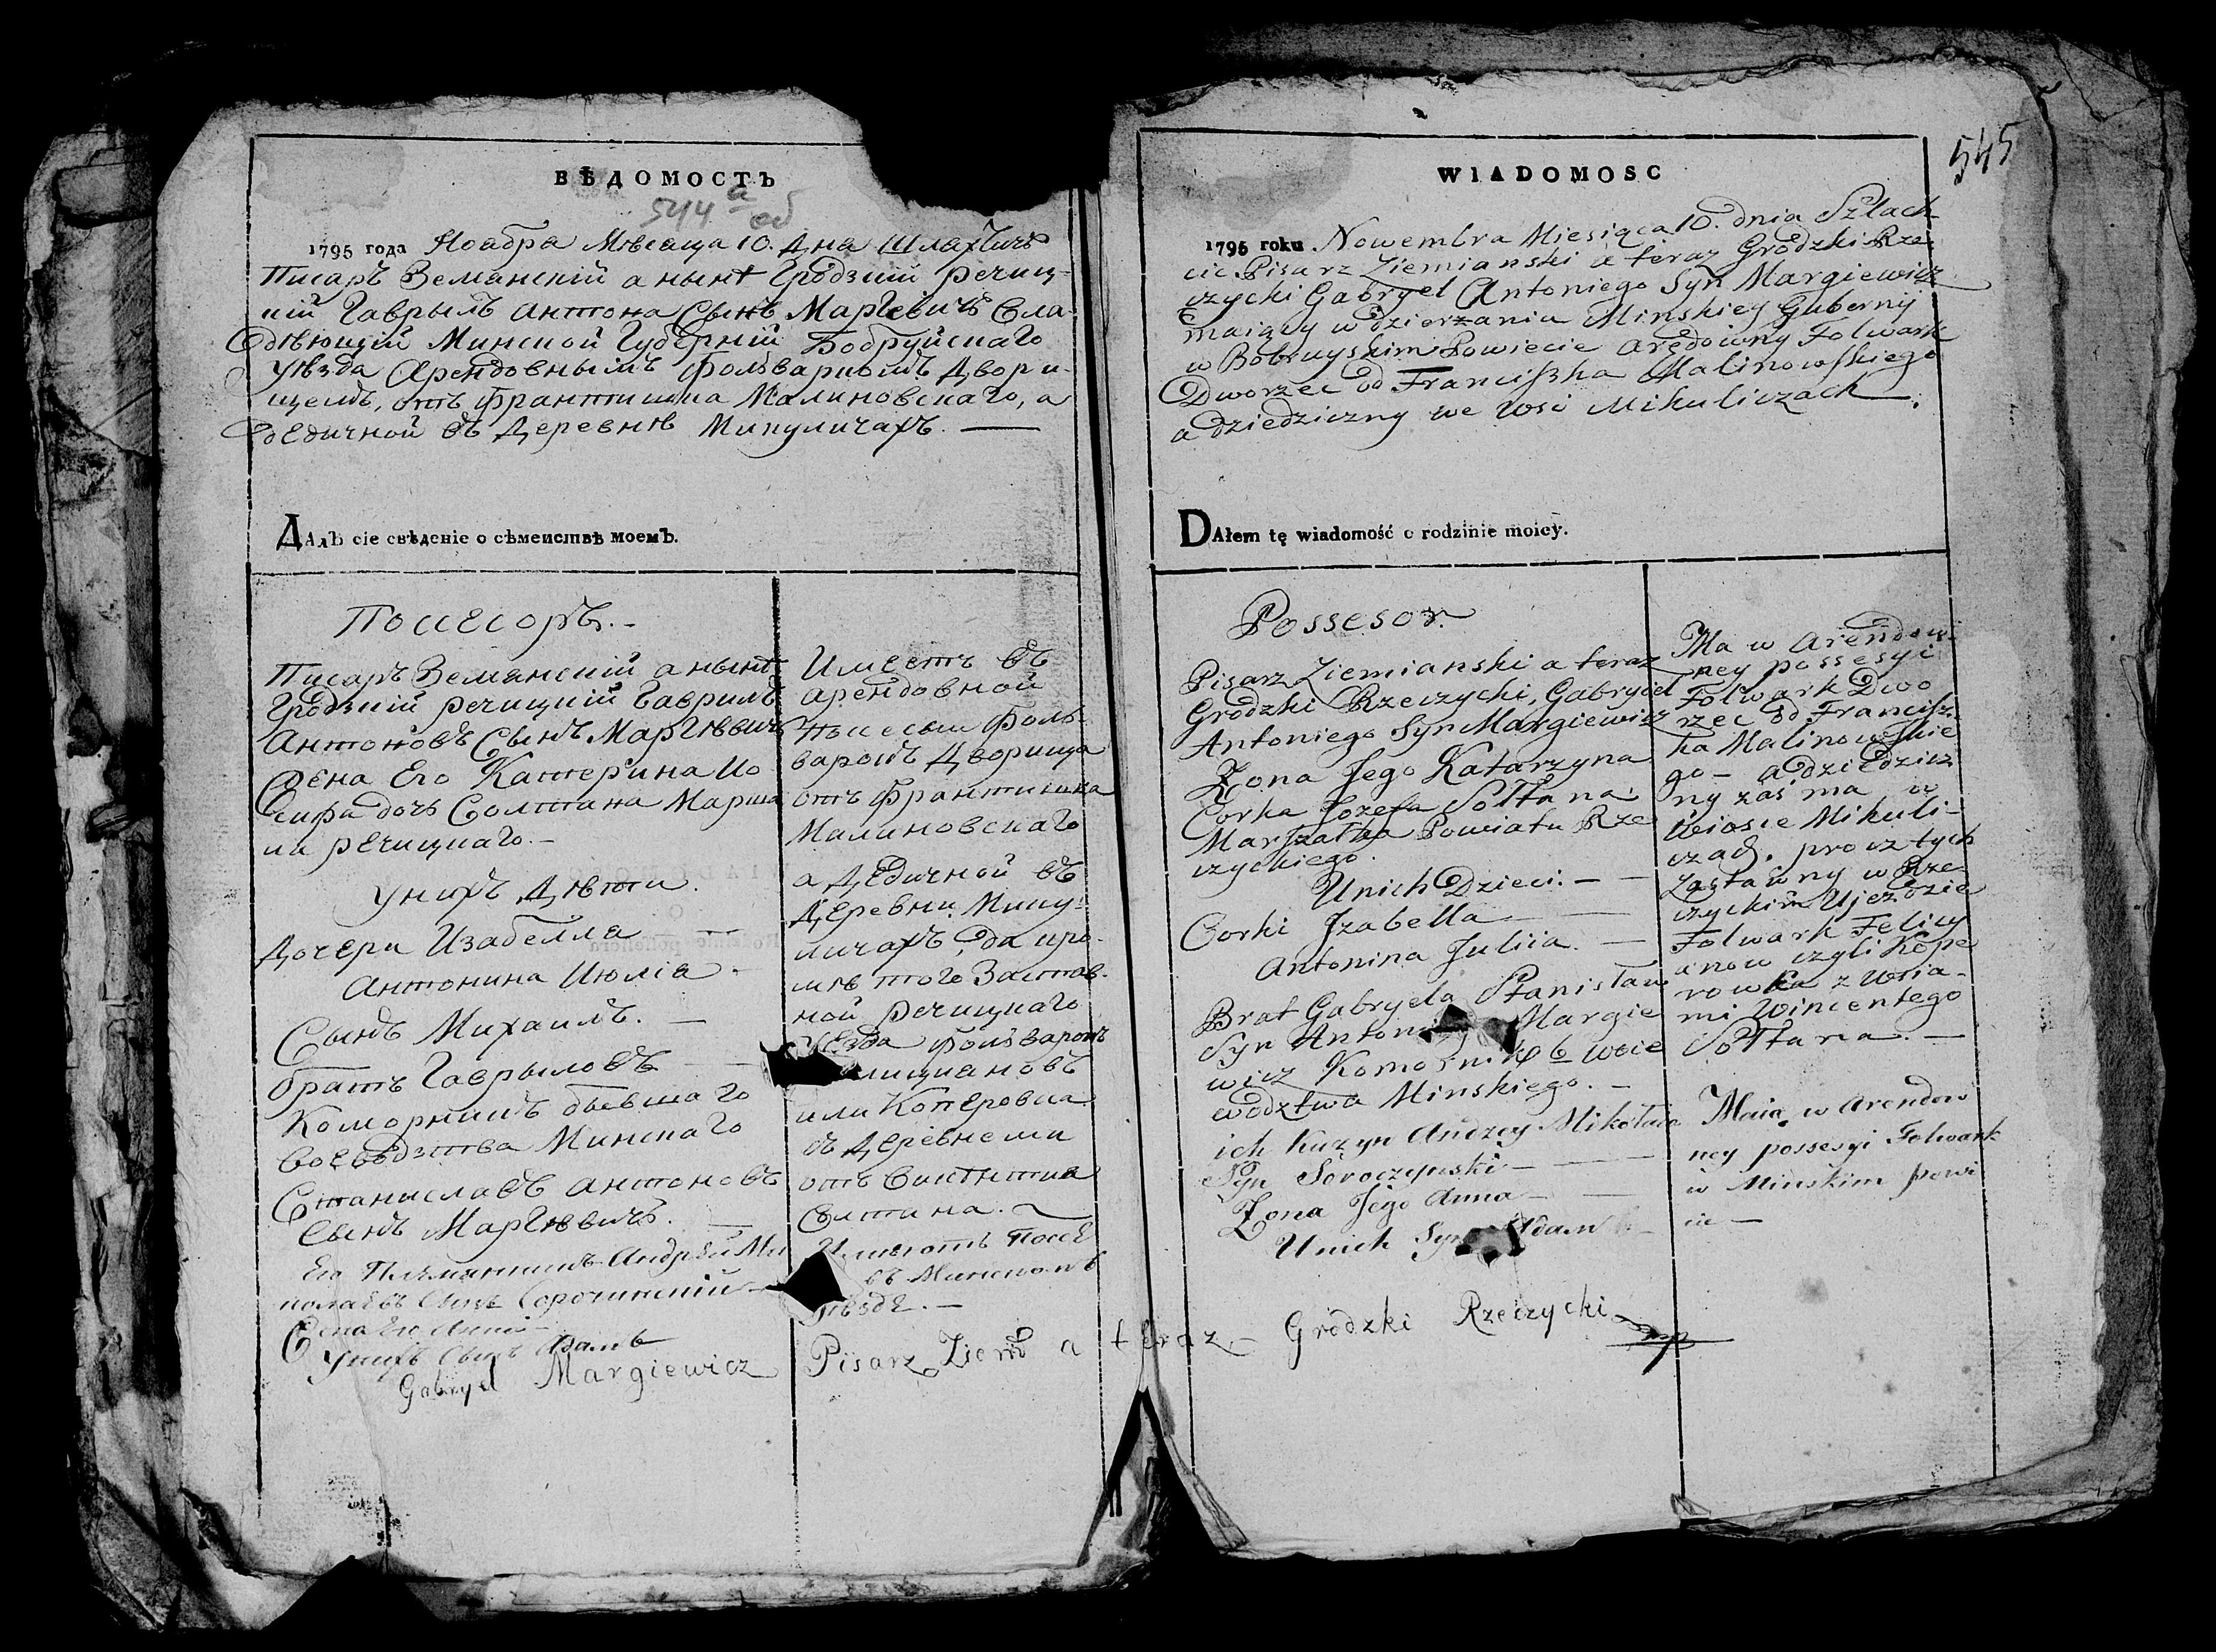 ВѢДОМОСТЬ
544 а об
1795 года Ноабра Мѣсаца 10. Дна Шлахтичъ
Писаръ Земянскій а нынѣ Гродзкій речиц-
кій Гаврылъ Антона Сынъ Маргевичъ Вла-
дѣющій Минской Губерніи Бобруйскаго
уѣзда Арендовнымъ фольваркомъ Двори-
щемъ, отъ франтишка Малиновскаго, а
дедичной въ Деревнѣ Микуличахъ. —
ДАлЪ сіе свѣденіе о сѣмействѣ моемЪ.
Поссесоръ. -
Писаръ Земянскій а нынѣ
Гродзкій речицкій Гаврилъ
Антоновъ Сынъ Маргѣвичъ
Жена Его Катерина Ио
сифа дочь Солтана Марша
ла речицкаго. -
у нихъ Дѣти.
Дочери Изабелла —
Антонина Июлія -
Сынъ Михаилъ. —
братъ Гаврыловъ —
Коморникъ бывшаго
воеводзтва Минскаго
Станиславъ Антоновъ
Сынъ Маргѣвичъ. —
Его Племянникъ Андрей Ми
колаевъ Сынъ Сорочинскій —
Жена Его Анна —
У нихъ Сынъ Адамъ
Имеетъ въ
арендовной
поссесыи фоль-
варокъ Дворища
отъ франтишка
Малиновскаго
а Дедичной въ
Деревни Мику-
личахъ, да кро-
мѣ того Застав-
ной Речицкаго
уезда фольварокъ
лициановъ
или Коперовка
съ Деревнеми
отъ Викентиа
Солтана. —
Имѣютъ Поссе
въ Минскомъ
уѣзде. —
Gabryel Margiewicz Pisarz Ziem a teraz - Grodzki Rzeczycki mp
545
WIADOMOSC
1795 roku Nowembra Miesiąca 10. dnia Szlach
cic Pisarz Ziemianski a teraz Grodzki Rze
czycki Gabryel Antoniego Syn Margiewicz
maiący w dzierzaniu Minskiey Guberny
w Bobruyskim Powiecie arędowny Folwark
Dworzec od Franciszka Malinowskiego
a dziedziczny we wsi Mikuliczach —.
DAłem tę wiadomość o rodzinie moiey.
Possesor.
Pisarz Ziemianski a teraz
Grodzki Rzeczycki, Gabryiel
Antoniego Syn Margiewicz
Zona Jego Katarzyna
Corka Jozefa Sołtana
Marszałka Powiatu Rze
czyckiego.
Unich Dzieci. - —
Corki Jzabella —
Antonina Juliia. —
Brat Gabryela Stanisław
Syn Antoni Margie
wicz Komornik b woie
wodztwa Minskiego. —
ich Kuzyn Andzey Mikołaia
Syn Soroczynski — —
Zona Jego Anna — —
Unich Syn Adam —
Ma w arendow
ney possesyi
Folwark Dwo
rzec od Francisz
ka Malinowskie
go - a dziedzicz
ny zaś ma w
wiosce Mikuli-
czach. procz tych
Zastawny w Rze-
czyckim Ujezdzie
Folwark Felicy
anow czyli Kope
rowka z wsia-
mi Wincentego
Sołtana. —
Maią w arendow
ney possesyi Folwark
w Minskim powi
cie —